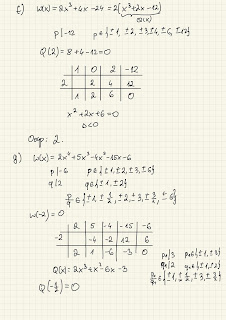 c) W(x) = 2x³+4x-24 = 2(x³+2x-12)
Q(x)
p|-12   p∈{±1, ±2, ±3, ±4, ±6, ±12}
Q(2) = 8+4-12=0
1 | 0 | 2 | -12
2 | 2 | 4 | 12
1 | 2 | 6 | 0
x²+2x+6=0
Δ<0
Odp: 2.
W(x) = 2x⁴+5x³-4x²-15x-6
p|-6   p∈{±1, ±2, ±3, ±6}
q|2   q∈{±1, ±2}
p/q ∈{±1, ±1/2, ±2, ±3, ±3/2, ±6}
W(-2) = 0
2 | 5 | -4 | -15 | -6
-2 | -4 | -2 | 12 | 6
2 | 1 | -6 | -3 | 0
Q(x) = 2x³+x²-6x-3
p₁|3   p₁∈{±1, ±3}
q₁|2   q₁∈{±1, ±2}
Q(-1/2) = 0